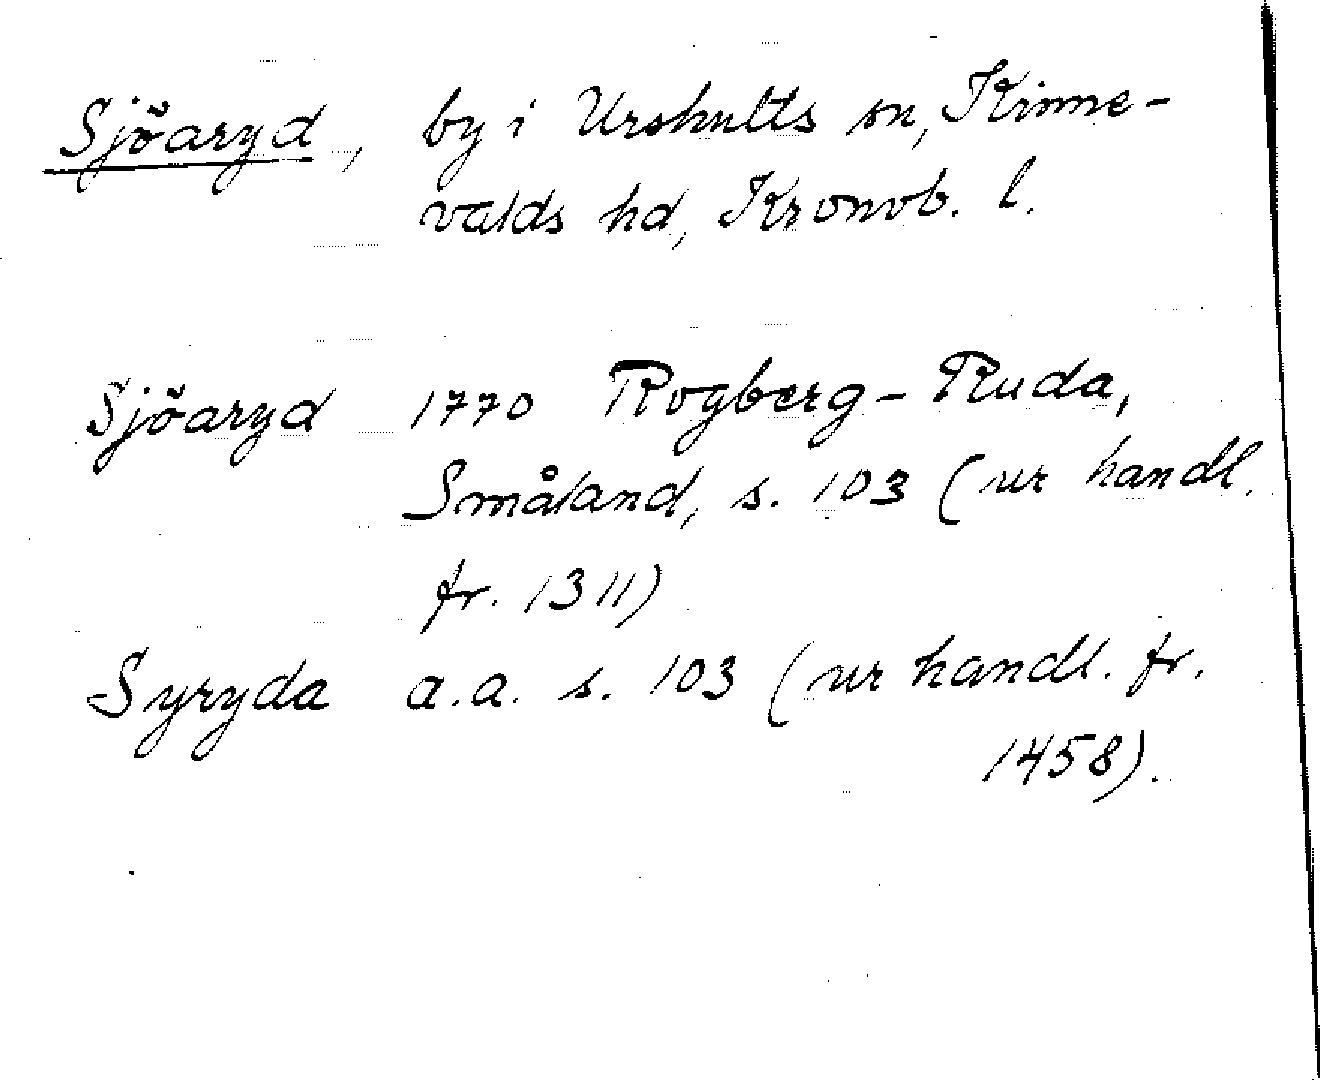 Sjöaryd, by i Urshults sn, Kinne-
valds hd, Kronob. l.
Sjöaryd 1770 Rogberg-Ruda,
Småland, s. 103 (ur handl.
fr. 1311)
Syryda a.a. s. 103 (ur handl. fr.
1458).